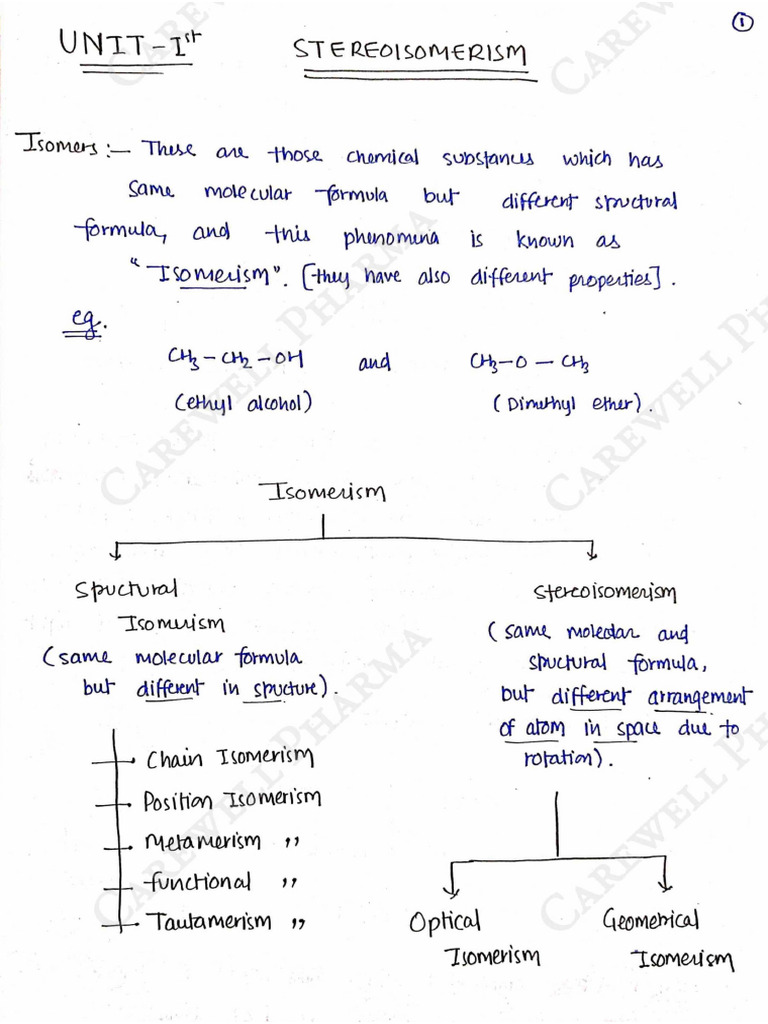 ①
UNIT-Ist STEREOISOMERISM
Isomers:— These are those chemical substances which has
same molecular formula but different structural
formula, and this phenomina is known as
"Isomerism". [they have also different properties].
eg.
CH3-CH2-OH and CH3-O-CH3
(ethyl alcohol) (Dimethyl ether).
Isomerism
Structural
Isomerism
(same molecular formula
but different in structure).
Chain Isomerism
Position Isomerism
Metamerism ,,
functional ,,
Tautamerism ,,
Stereoisomerism
(same molecular and
structural formula,
but different arrangement
of atom in space due to
rotation).
Optical
Isomerism
Geometrical
Isomerism
CAREWELL PHARMA
CAREWELL PHARMA
CAREWELL PHARMA
CAREWELL PHARMA